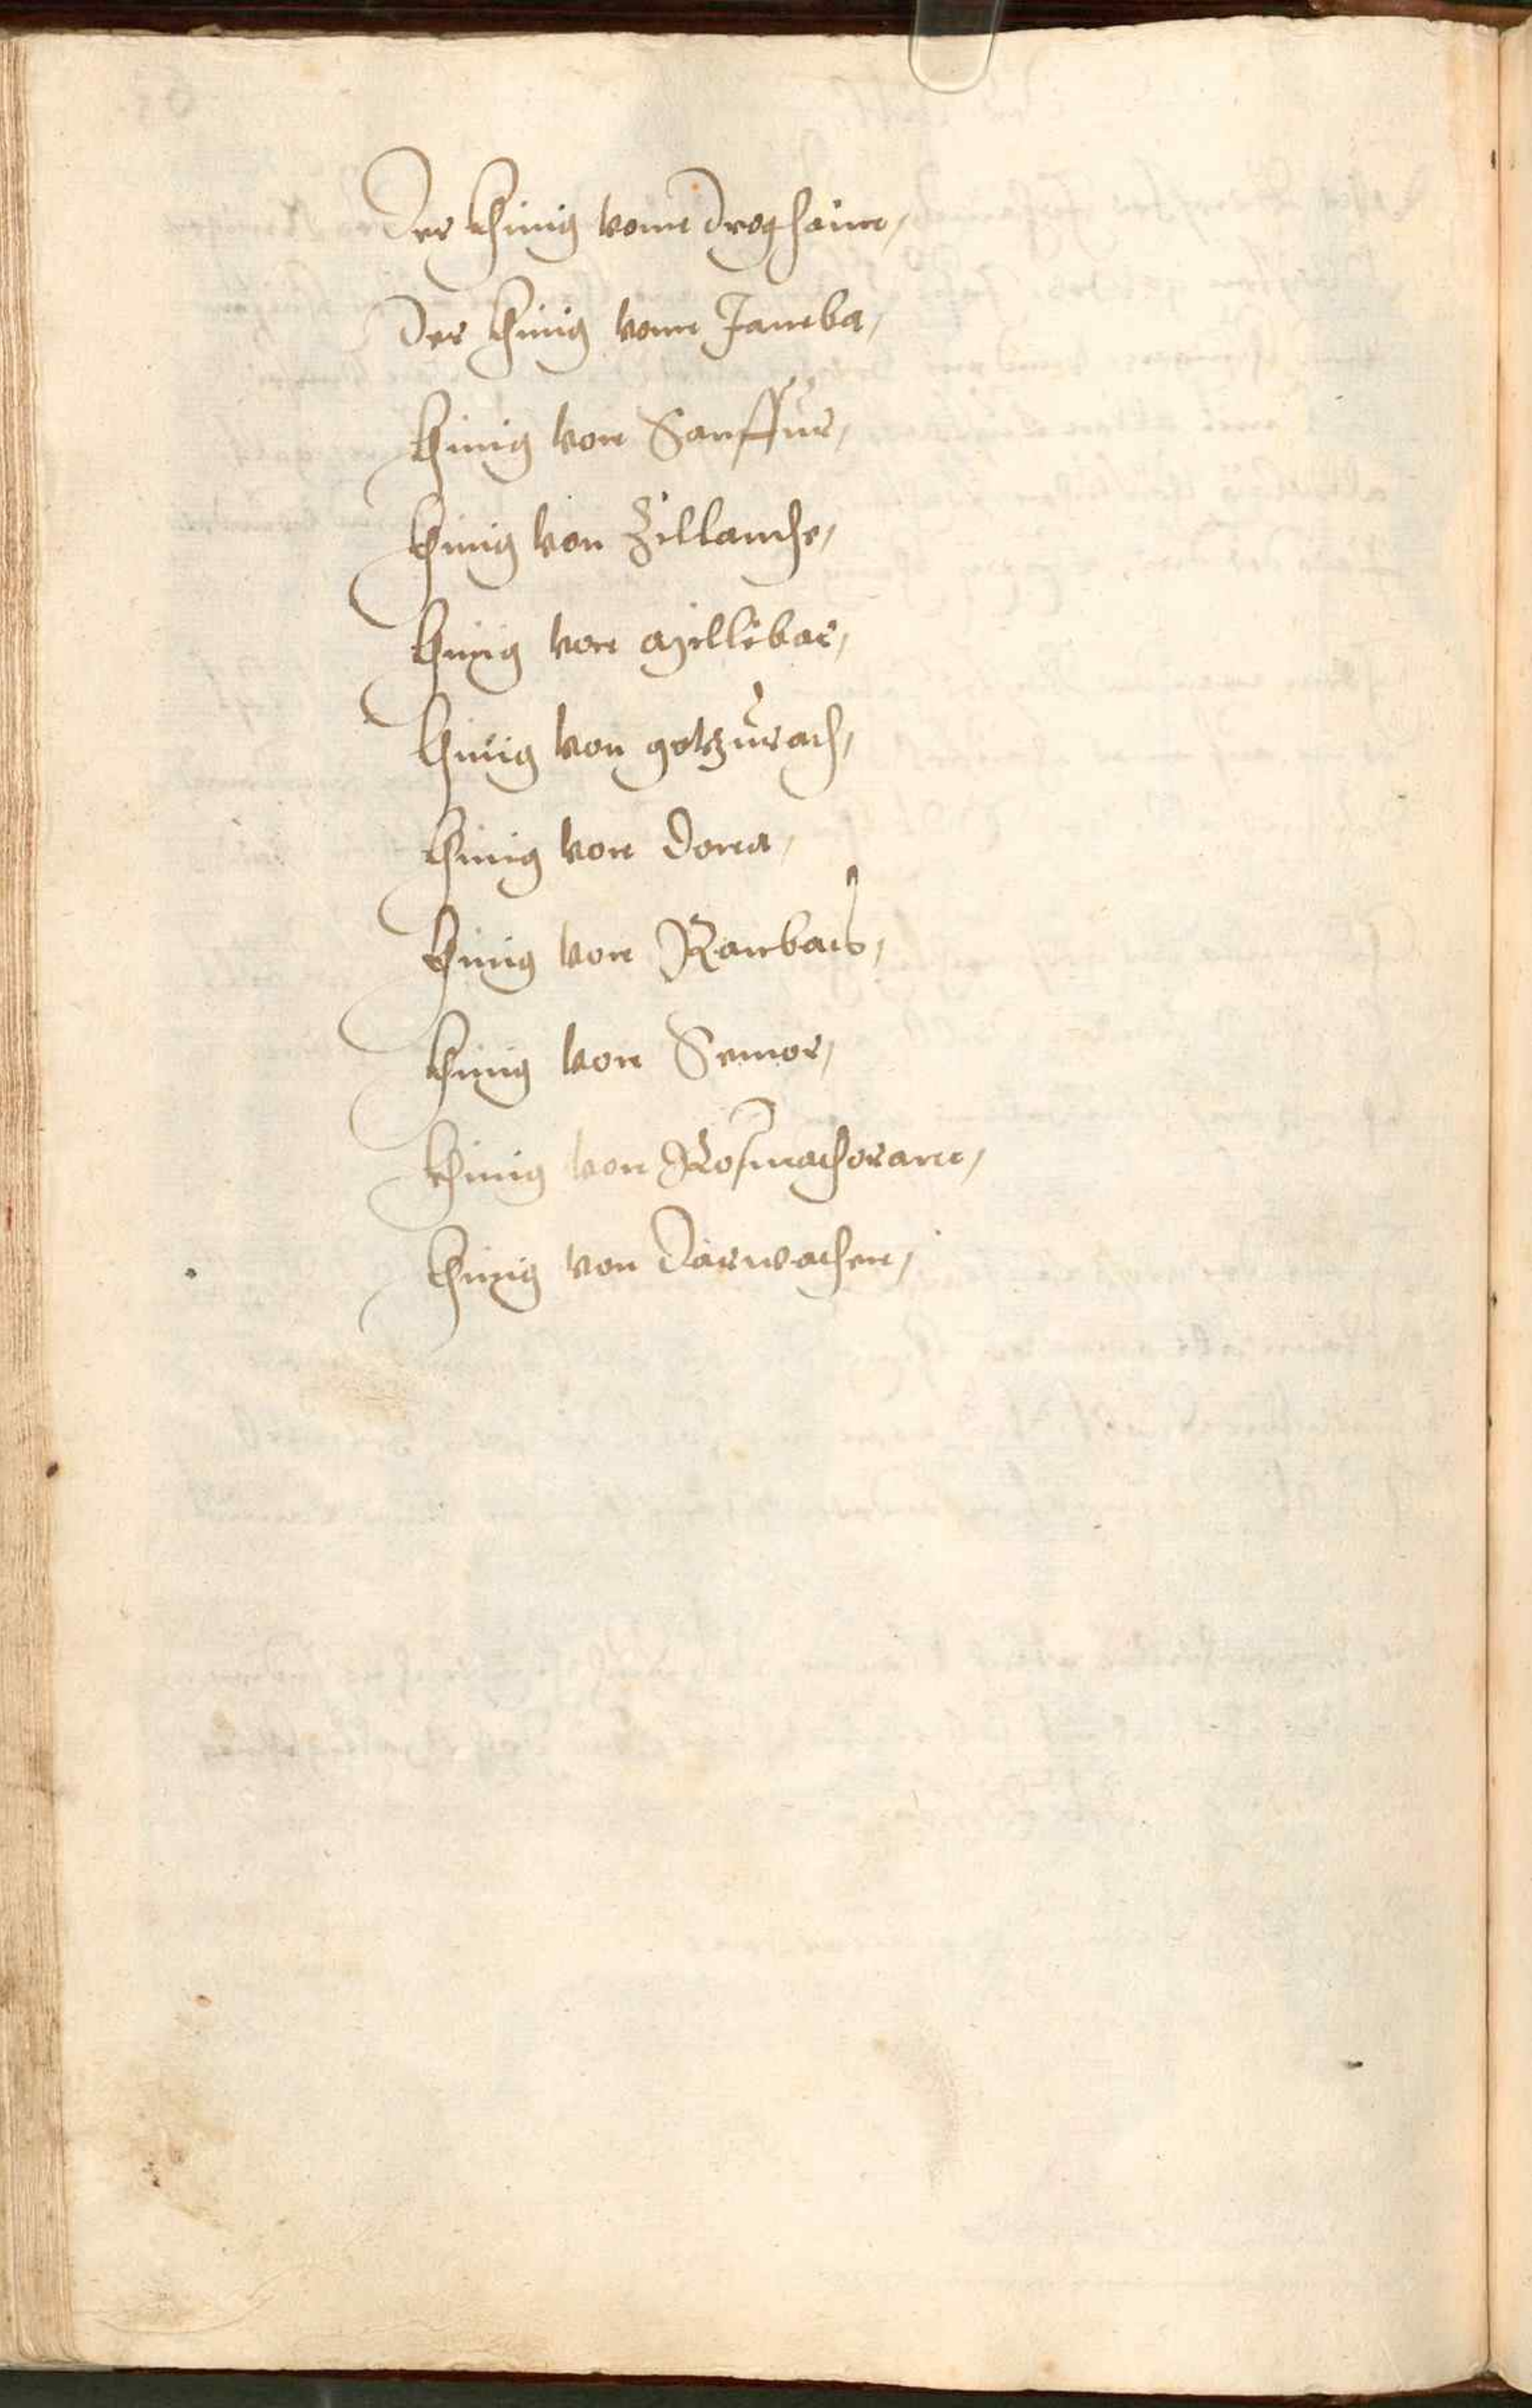 Der khinig vonn Droghaim,
Der khinig vonn Janeba,
khinig von Sanffur,
khinig von Zillanche,
khinig von Millibar,
khinig von gotzurach,
khinig von Dona,
khinig von Rambais,
khinig von Semor,
khinig von Rosmachorann,
khinig von Darwachen,